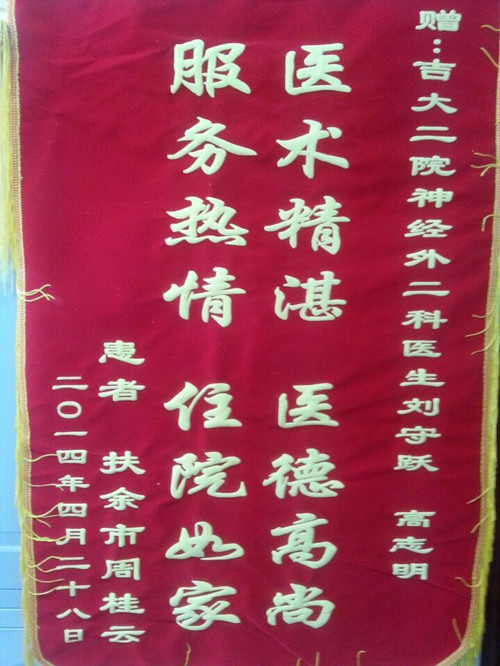 赠:吉大二院神经外二科医生刘守跃 高志明
医术精湛 医德高尚
服务热情 住院如家
患者 扶余市周桂云
二〇一四年四月二十八日